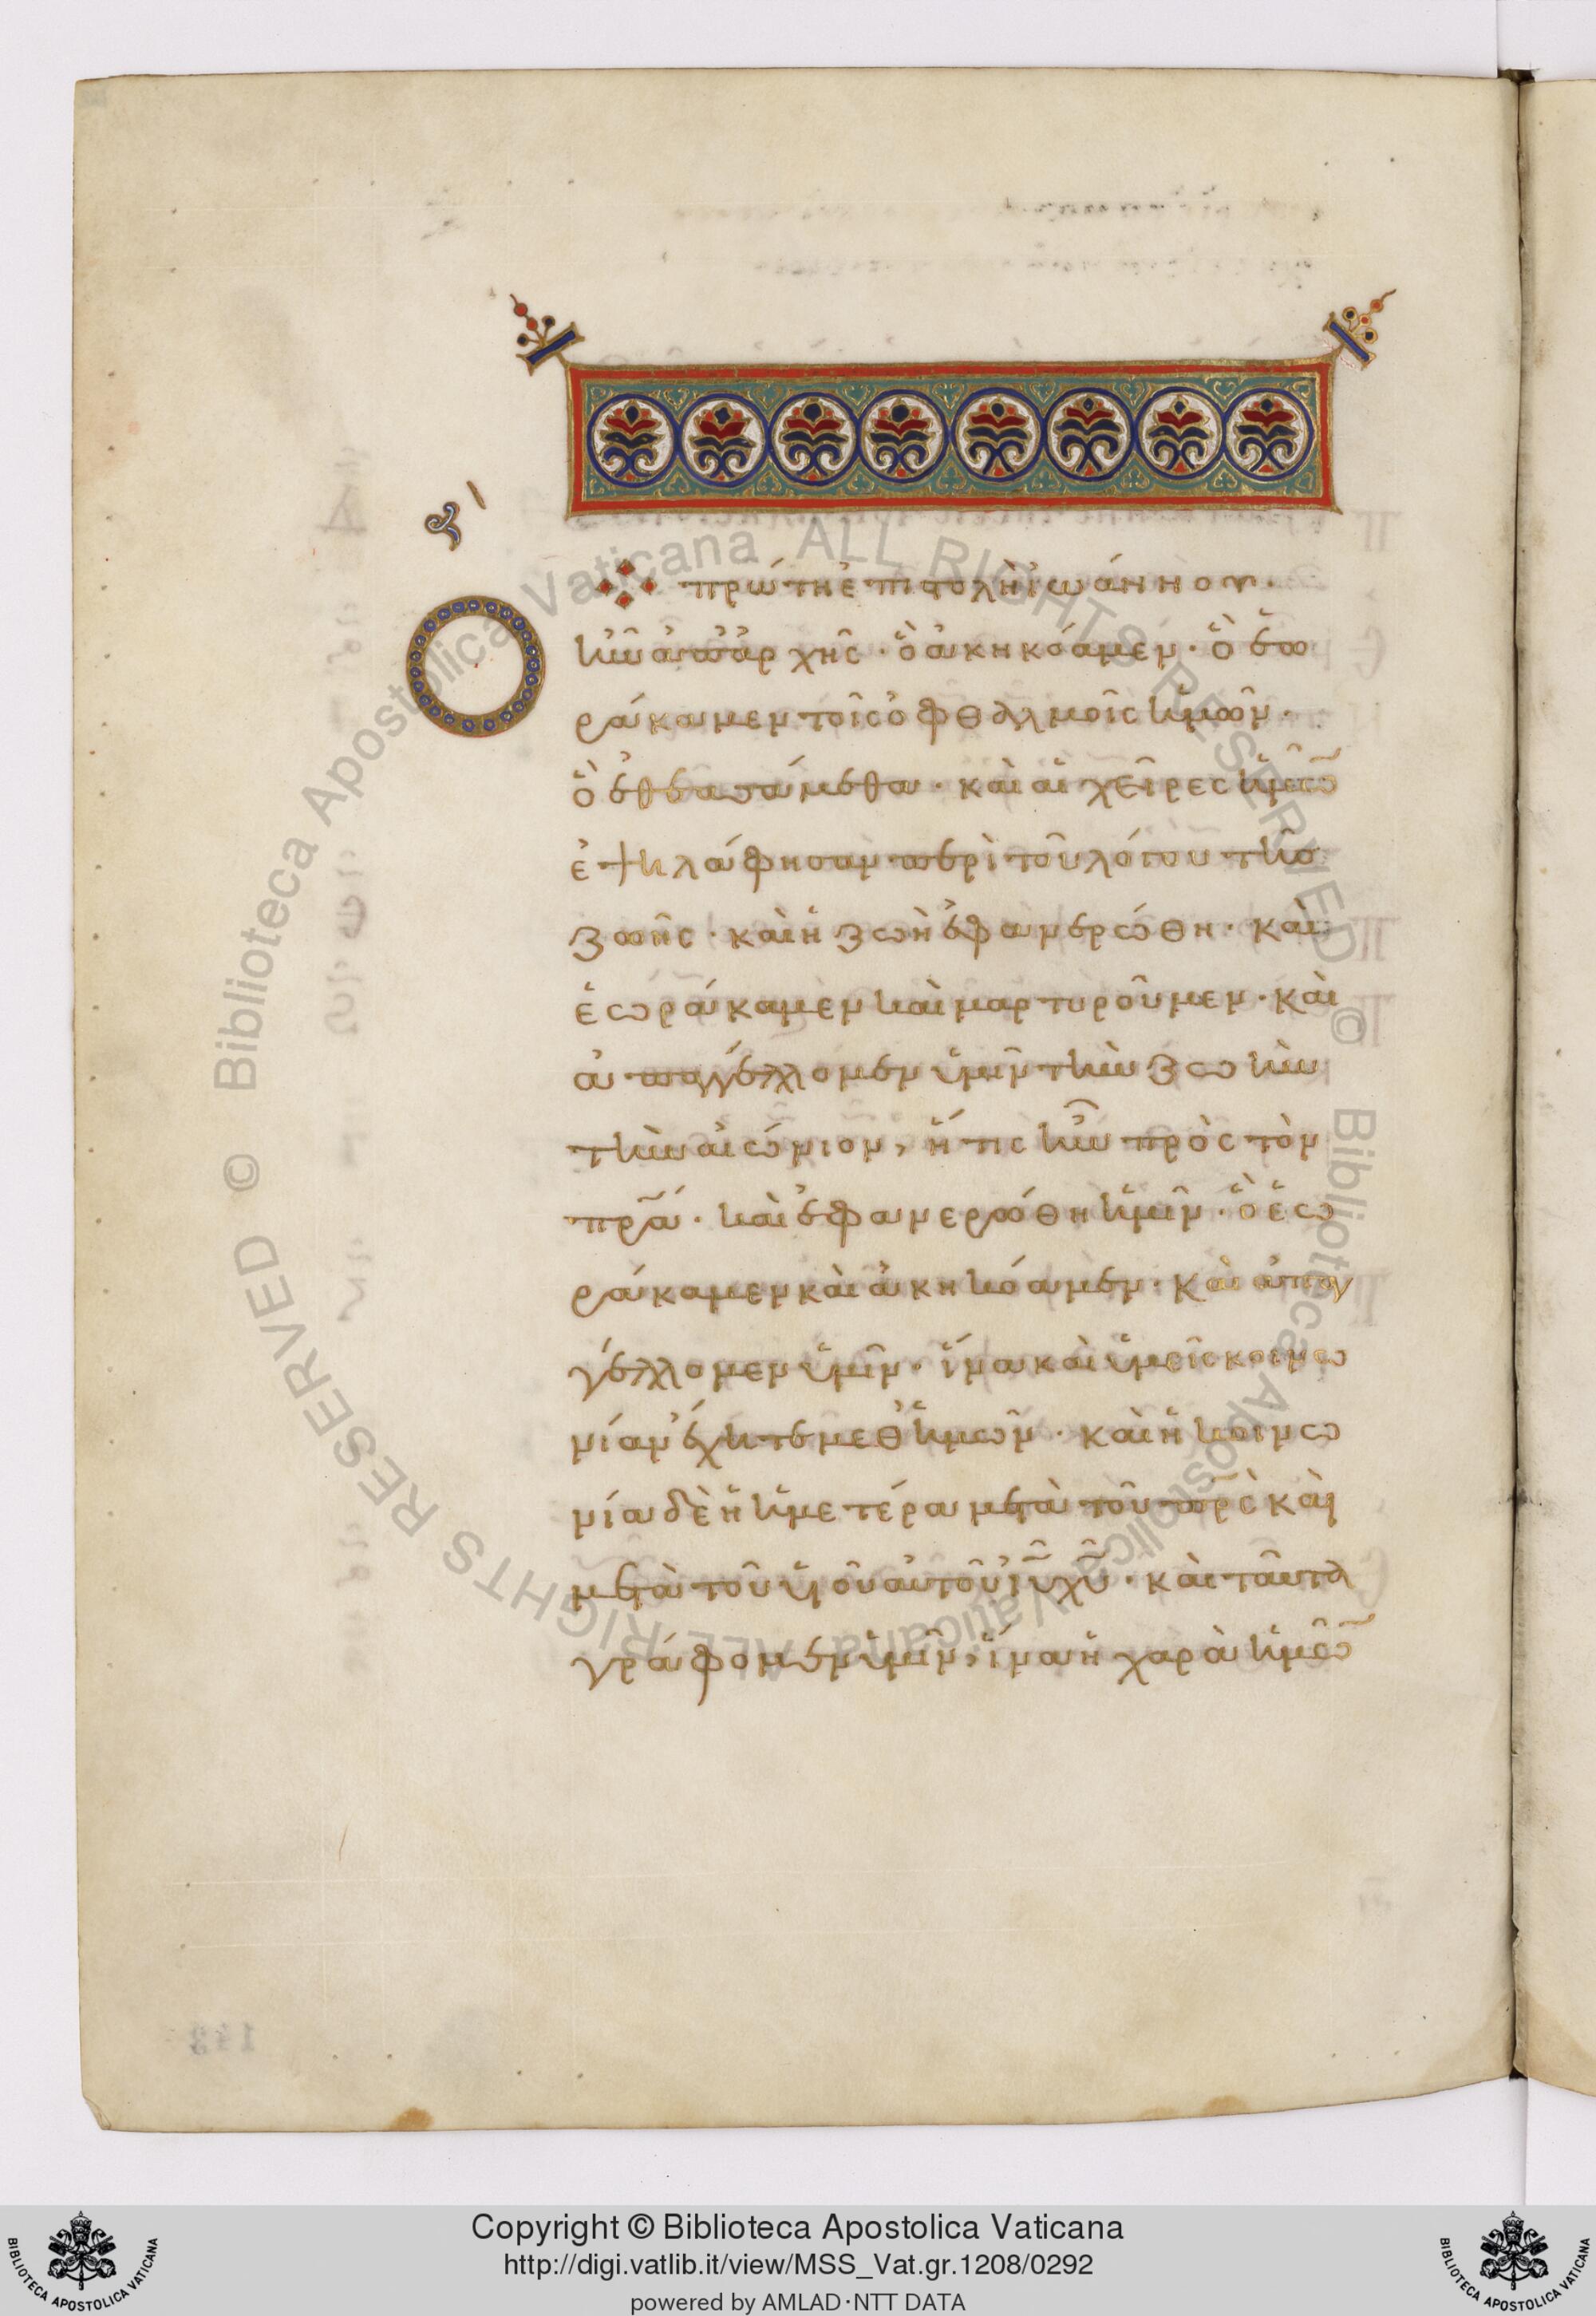 πρώτη ἐπιστολὴ ἰωάννου.
Ὃ ἦν ἀπ' ἀρχῆς · ὃ ἀκηκόαμεν · ὃ ἑω
ράκαμεν τοῖς ὀφθαλμοῖς ἡμῶν ·
ὃ ἐθεασάμεθα · καὶ αἱ χεῖρες ἡμῶ̃
ἐψηλάφησαν περὶ τοῦ λόγου τῆς
ζωῆς · καὶ ἡ ζωὴ ἐφανερώθη · καὶ
ἑωράκαμεν καὶ μαρτυροῦμεν · καὶ
ἀπαγγέλλομεν ὑμῖν τὴν ζωὴν
τὴν αἰώνιον, ἥτις ἦν πρὸς τὸν
πρ̃α · καὶ ἐφανερώθη ἡμῖν · ὃ ἑω
ράκαμεν καὶ ἀκηκόαμεν · καὶ ἀπαγ
γέλλομεν ὑμῖν · ἵνα καὶ ὑμεῖς κοινω
νίαν ἔχητε μεθ' ἡμῶν · καὶ ἡ κοινω
νία δὲ ἡ ἡμετέρα μετὰ τοῦ πρ̃ς καὶ
μετὰ τοῦ υἱοῦ αὐτοῦ ἰῦ χῦ · καὶ ταῦτα
γράφομεν ὑμῖν, ἵνα ἡ χαρὰ ἡμῶ̃
Copyright © Biblioteca Apostolica Vaticana
http://digi.vatlib.it/view/MSS_Vat.gr.1208/0292
powered by AMLAD·NTT DATA
© Biblioteca Apostolica Vaticana ALL RIGHTS RESERVED © Biblioteca Apostolica Vaticana ALL RIGHTS RESERVED
BIBLIOTECA APOSTOLICA VATICANA
BIBLIOTECA APOSTOLICA VATICANA